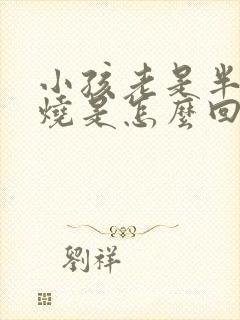 小孩老是半
燒是怎麼回
劉祥